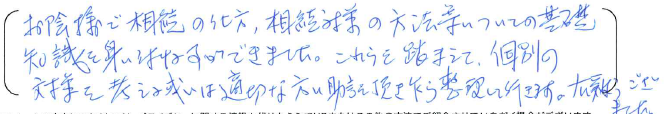 お陰様で相続の仕方，相続対策の方法等についての基礎
知識を身に付ける事ができました。これらを踏まえて、個別の
対策を考える或いは適切な方に助言を頂き乍ら整理して行きます。有難うござい
ました